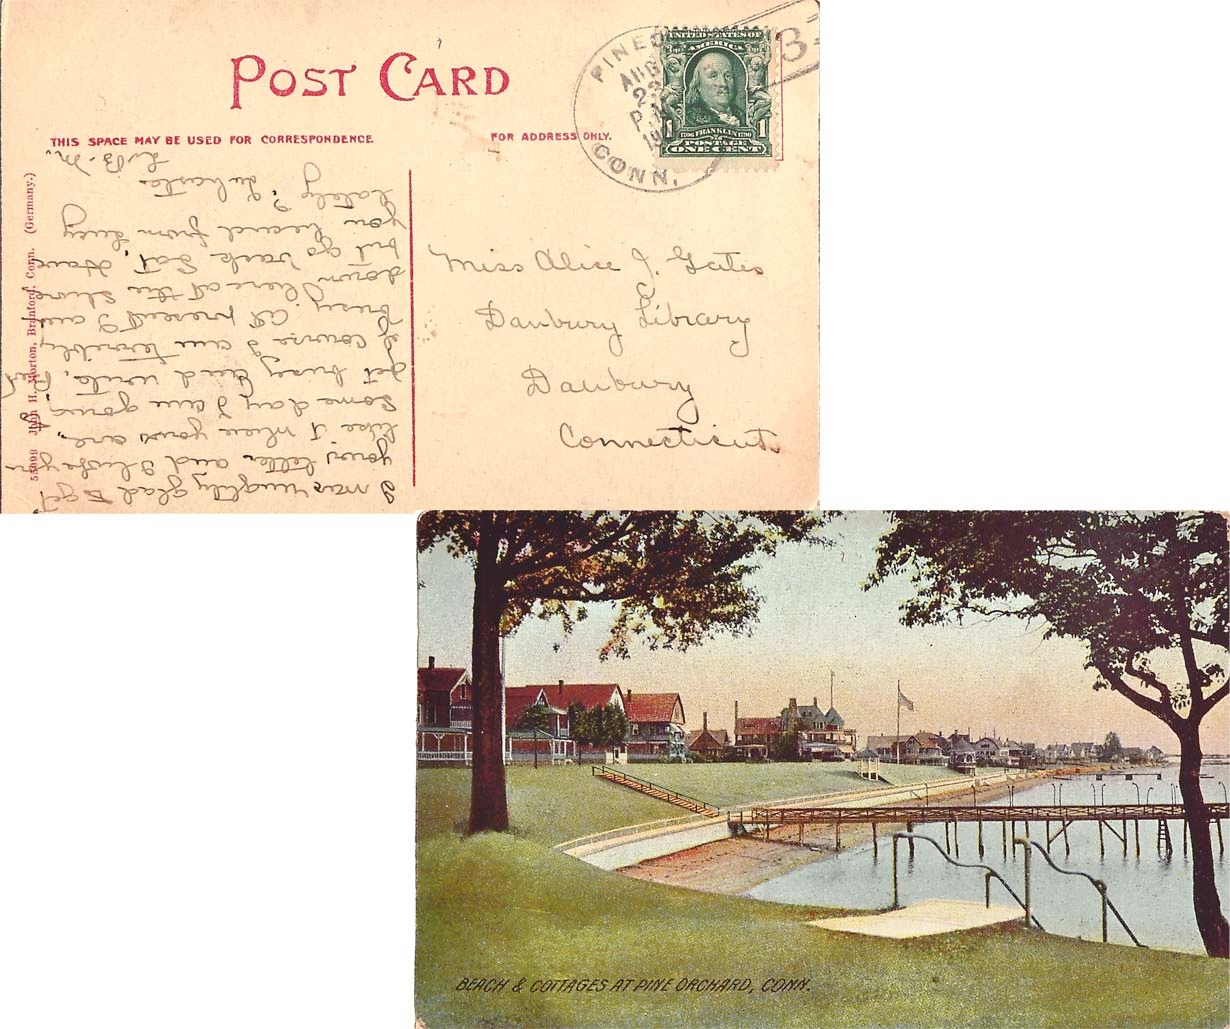 POST CARD
THIS SPACE MAY BE USED FOR CORRESPONDENCE.
FOR ADDRESS ONLY.
PINE
AUG
CONN.
3
UNITED STATES OF
AMERICA
1 1
1706 FRANKLIN 1790
POSTAGE
ONE CENT
55909 John H. Morton, Branford, Conn. (Germany.)
I was mighty glad to get
your letter and I hope you
like it where you are.
Some day I am going to
get busy and write. But
of course I am terribly
busy. At present I am
down here at the shore
but go back Sat. Have
you heard from Lucy
lately?
L. B. M.
Miss Alice J. Gates
Danbury Library
Danbury
Connecticut.
BEACH & COTTAGES AT PINE ORCHARD, CONN.